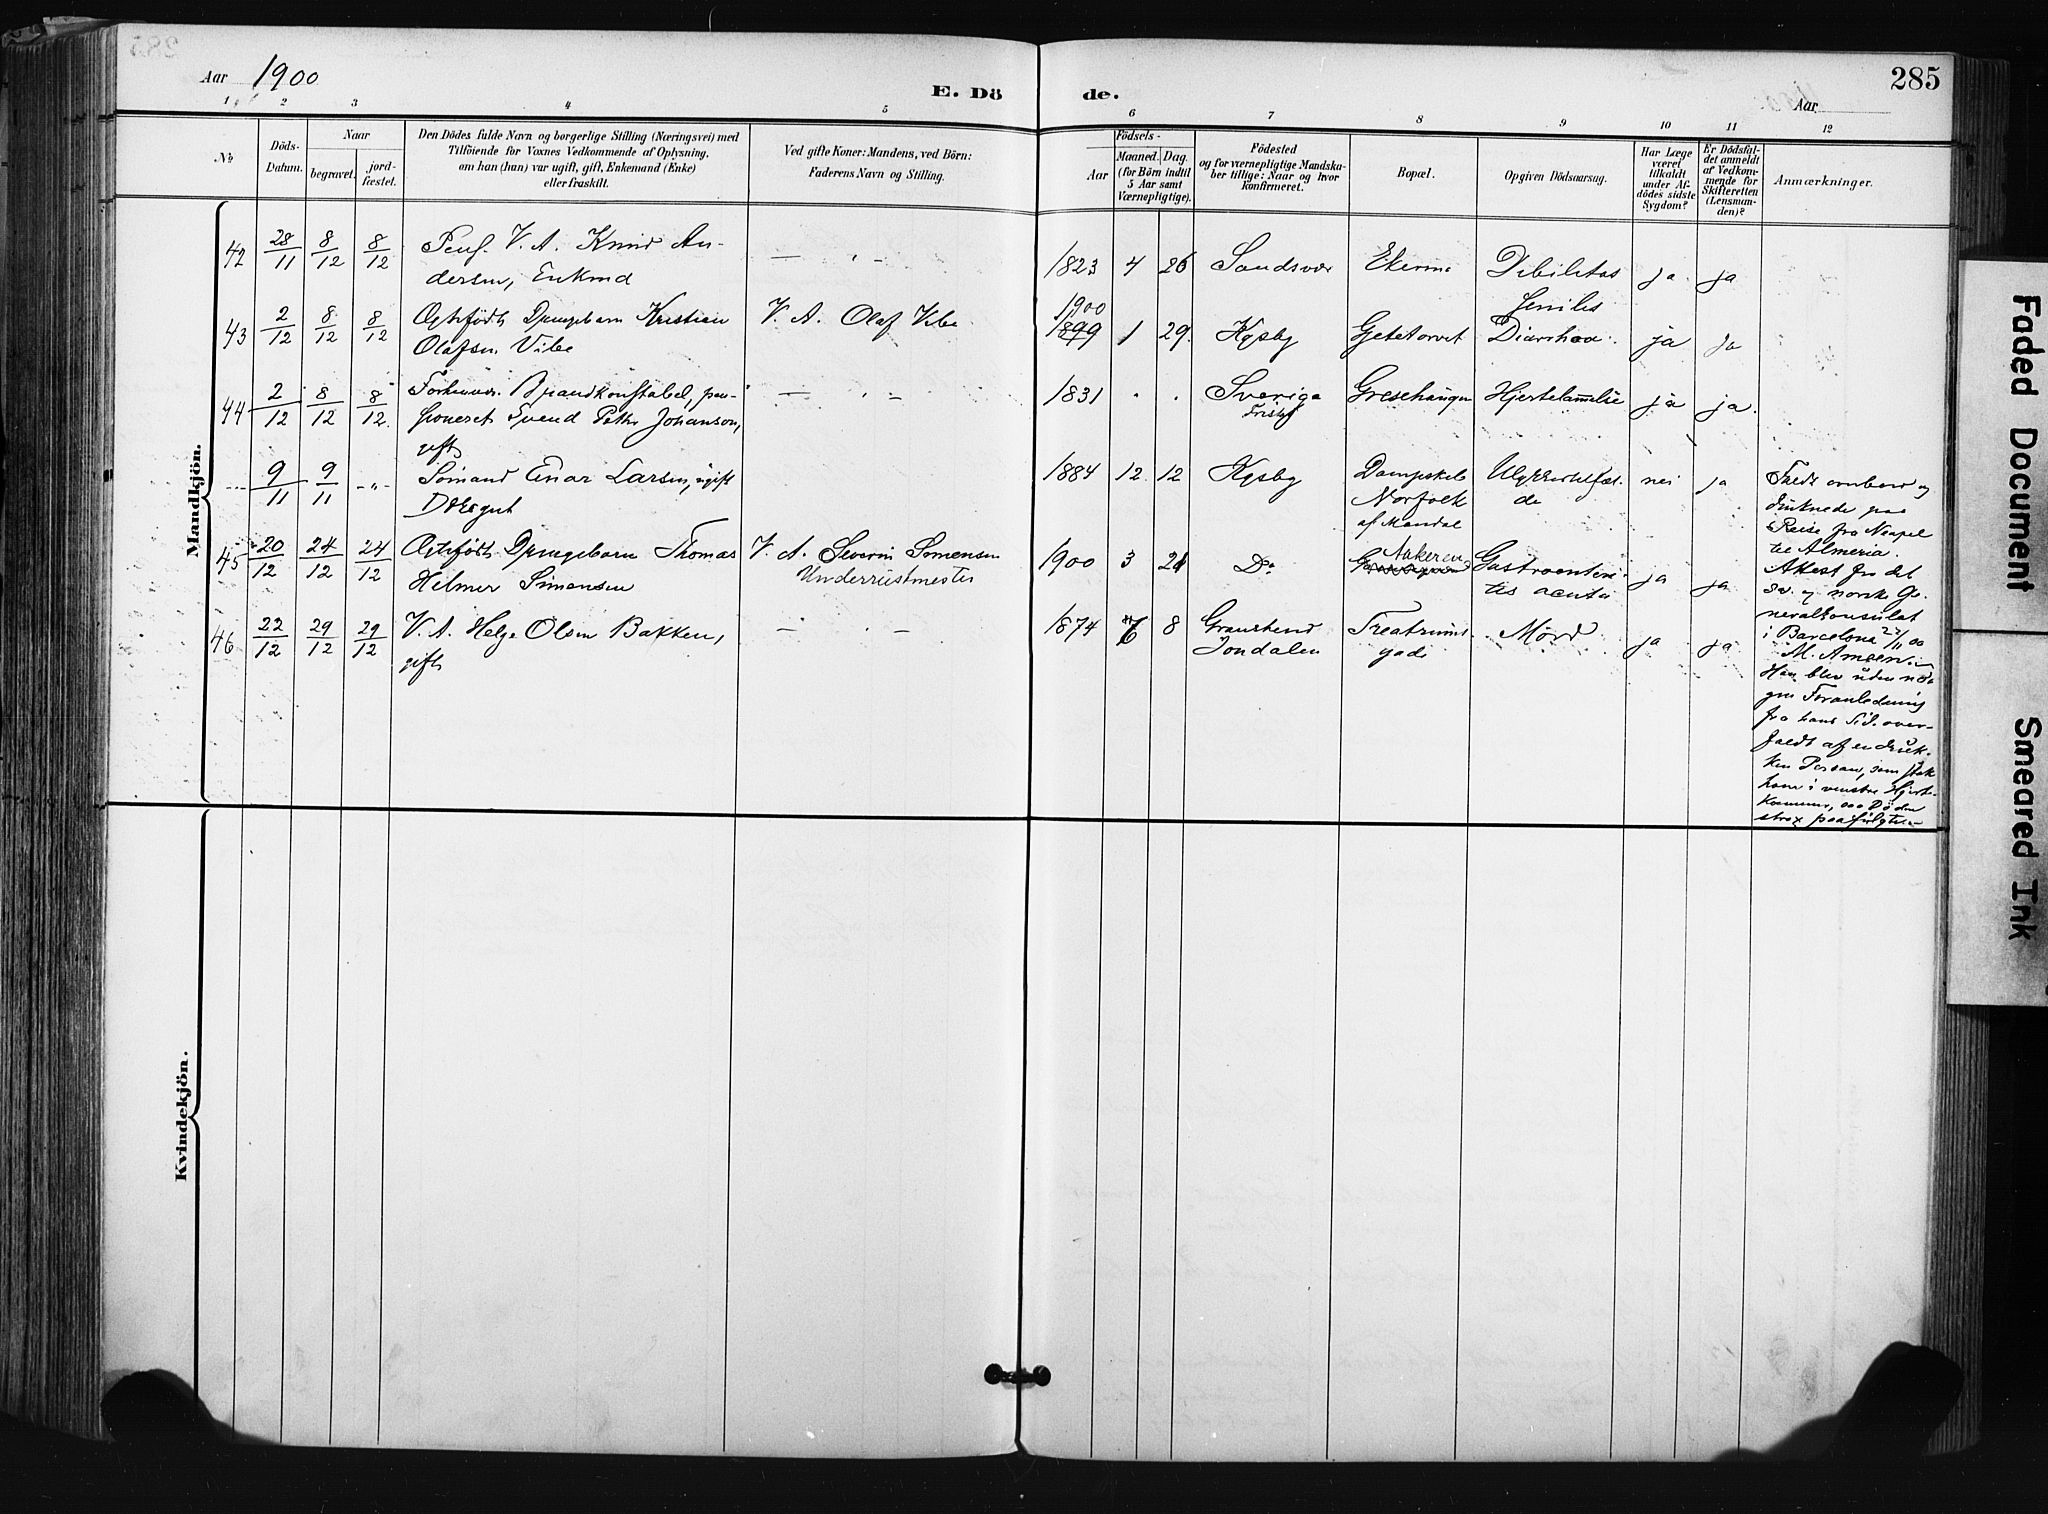 285
Aar 1900
E. Dö
de.
Aar
1 2 3 4 5 6 7 8 9 10 11 12
No
Döds-Datum.
Naar
begravet.
jord-fæstet.
Den Dödes fulde Navn og borgerlige Stilling (Næringsvei) med
Tilföiende for Voxnes Vedkommende af Oplysning,
om han (hun) var ugift, gift, Enkemand (Enke)
eller fraskilt.
Ved gifte Koner: Mandens, ved Börn:
Faderens Navn og Stilling.
Födsels-
Aar
Maaned. Dag.
(for Börn indtil
5 Aar samt
Værnepligtige).
Födested
og for værnepligtige Mandska-
ber tillige: Naar og hvor
konfirmeret.
Bopæl.
Opgiven Dödsaarsag.
Har Læge
været
tilkaldt
under Af-
dödes sidste
Sygdom?
Er Dödsfal-
det anmeldt
af Vedkom-
mende for
Skifteretten
(Lensman-
den)?
Anmærkninger.
Mandkjön.
42 28/11 8/12 8/12 Pens. V. A. Knud An-
dersen, Enkmd
1823 4 26 Sandsvær Ekerne Debilitas
senilis ja ja
43 2/12 8/12 8/12 Ægtefödt Drengebarn Kristian
Olafsen Vibe
V. A. Olaf Vibe
1900
1899 1 29. Kgsby Gjetetorvet Diarrhoea. ja ja
44 2/12 8/12 8/12. Forhenv. Brandkonstabel, pen-
sioneret Svend Petter Johanson,
gift
1831 . . Sverige Gresehaugen Hjertelammelse ja ja.
9/11 9/11 -"- Sömand Einar Larsen, ugift
1884 12. 12 Kgsby Dampskib
Norfolk
af Mandal
Ulykkestilfæl-
de
nei ja
Faldt ombord og
druknede paa
Reise fra Neapel
til Almeria.
Attest fra det
sv. og norske Ge-
neralkonsulat
i Barcelona 27/11 00
45 20/12 24/12 24/12 Ægtefödt Drengebarn Thomas
Helmer Simensen
V. A. Severin Simensen
Underrustmester
1900 3 21 Do Aakeren
Gastroenteri-
tis acuta
ja ja
46 22/12 29/12 29/12 V. A. Helge Olsen Bakken,
gift
1874 8 Granstend
Jondalen
Treatrums-
gade
Mord ja ja
Han blev uden no-
gen Foranledning
fra hans Side over-
faldt af en druk-
ken Person, som stak
ham i venstre Hjerte-
kammer, saa Döden
strax paafulgte.
Kvindekjön.
Faded Document
Smeared Ink